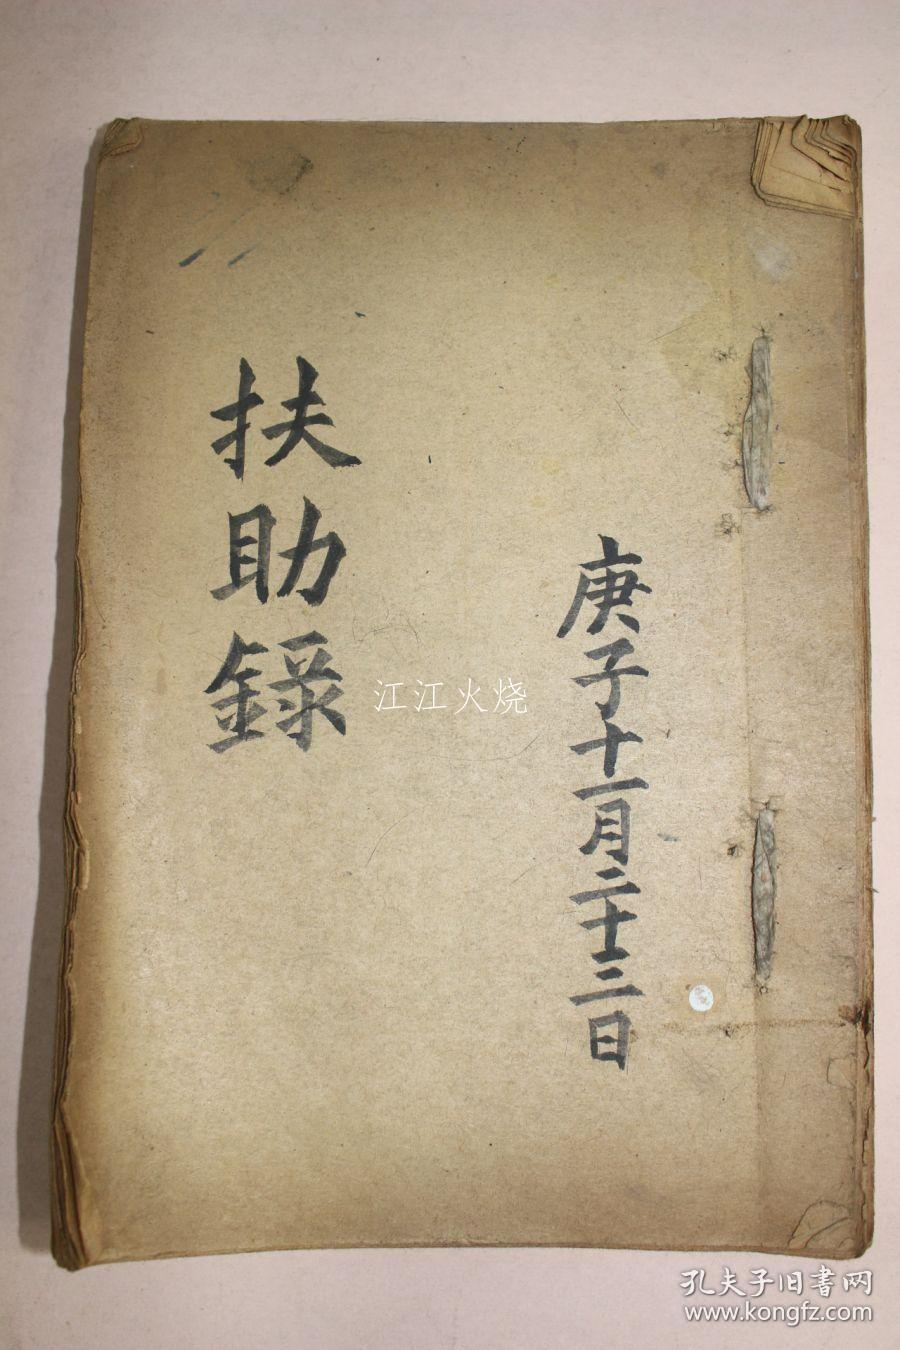 庚子十一月二十三日
扶助錄
江江火烧
孔夫子旧書网
www.kongfz.com